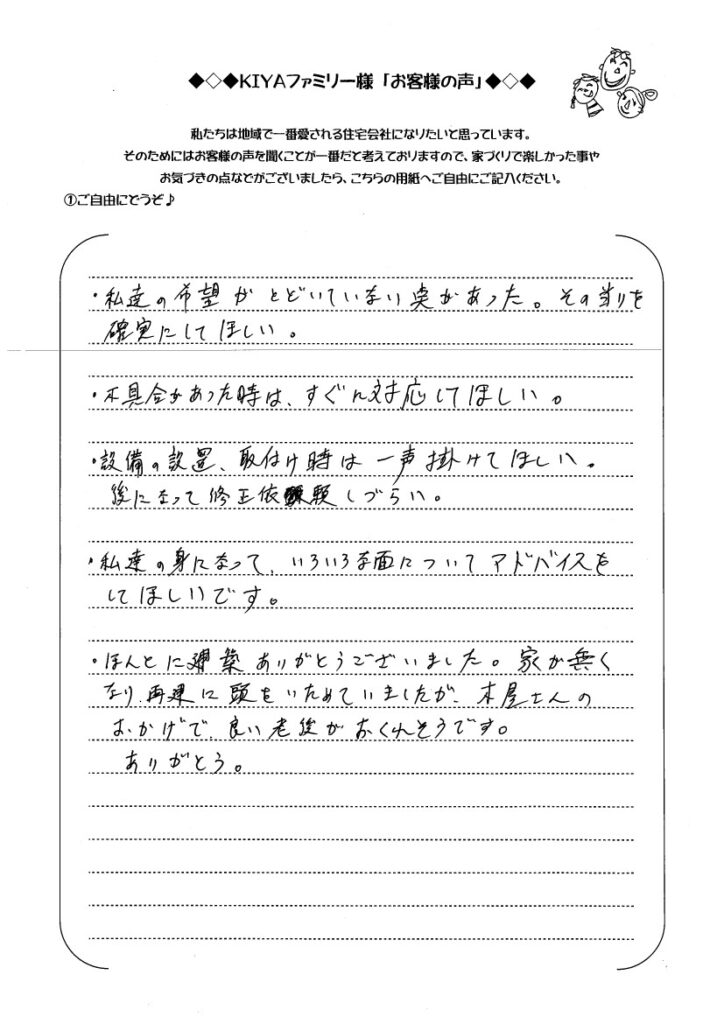 ◆◇◆KIYAファミリー様「お客様の声」◆◇◆
私たちは地域で一番愛される住宅会社になりたいと思っています。
そのためにはお客様の声を聞くことが一番だと考えておりますので、家づくりで楽しかった事や
お気づきの点などがございましたら、こちらの用紙へご自由にご記入ください。
①ご自由にどうぞ♪
・私達の希望がとどいていない実があった。その当りを
確実にしてほしい。
・不具合があった時は、すぐに対応してほしい。
・設備の設置、取付け時は一声掛けてほしい。
後になって修正依験しづらい。
・私達の身になって、いろいろな面についてアドバイスを
してほしいです。
・ほんとに建築ありがとうございました。家が無く
なり再建に頭をいためていましたが、木屋さんの
おかげで、良い老後がおくれそうです。
ありがとう。